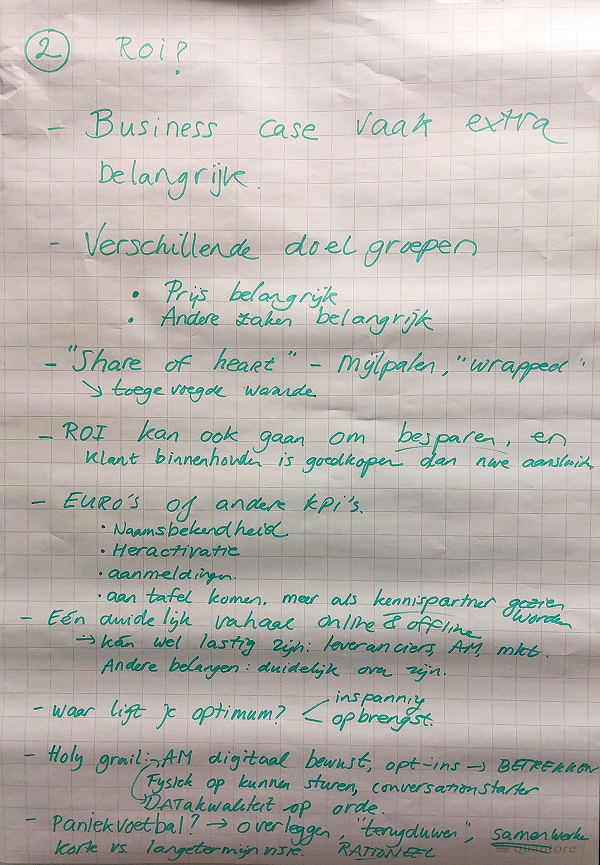 2 ROI?
- Business case vaak extra
belangrijk.
- Verschillende doelgroepen
• Prijs belangrijk
• Andere zaken belangrijk
- "Share of heart" - Mijlpalen, "wrapped"
↳ toegevoegde waarde
- ROI kan ook gaan om besparen, en
klant binnenhouden is goedkoper dan nwe aansluiten
- EURO's of andere KPI's.
• Naamsbekendheid
• Heractivatie
• aanmeldingen.
• aan tafel komen, meer als kennispartner gezien
worden
- Eén duidelijk verhaal online & offline
→ kán wel lastig zijn: leveranciers, AM, mkt.
Andere belangen: duidelijk over zijn.
- waar ligt je optimum? < inspanning
opbrengst.
- Holy grail: → AM digitaal bewust, opt-ins → BETREKKEN
Fysiek op kunnen sturen, conversationstarter
DATAkwaliteit op orde.
- Paniekvoetbal? → overleggen, "terugduwen", samenwerken
Korte vs. langetermijnvisie. RATIONEEL